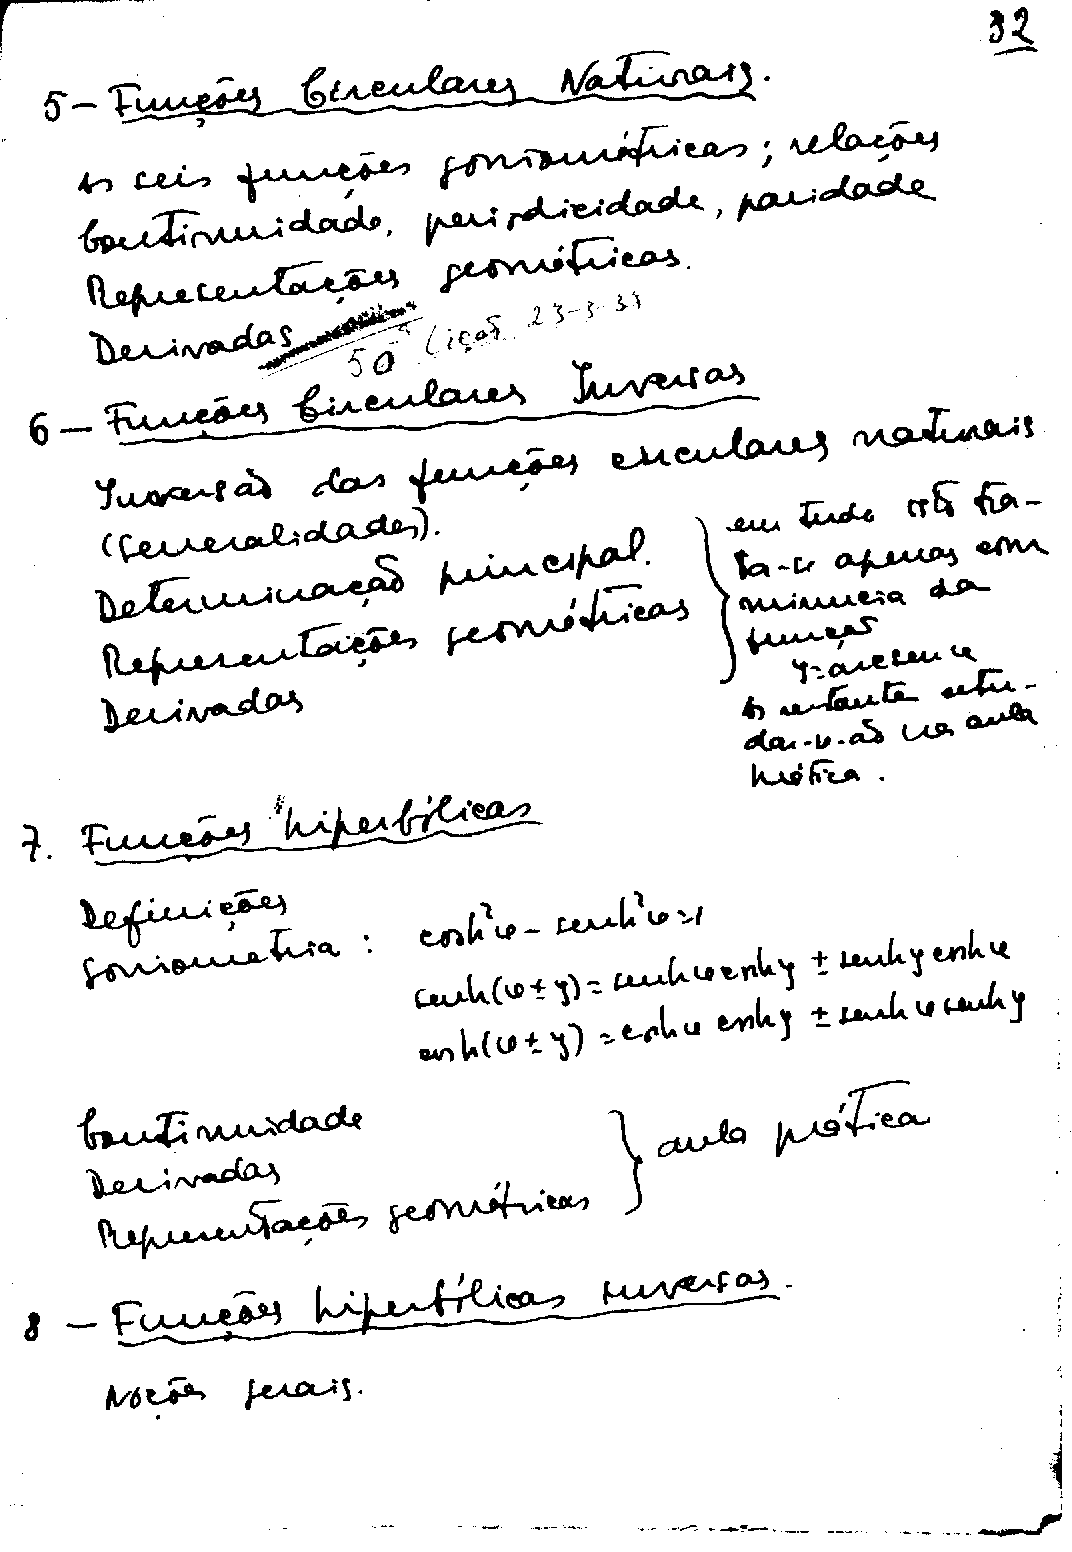 32
5 - Funções Circulares Naturais.
As seis funções goniométricas; relações
Continuidade, periodicidade, paridade
Representações geométricas.
Derivadas
50ª Lição 23-3-31
6 - Funções Circulares Inversas
Inversão das funções circulares naturais
(generalidades).
Determinação principal.
Representações geométricas
Derivadas
em tudo isto tra-
ta-se apenas com
minucia da
função
y = arcsen x
As restantes estu-
dar-se-ão na aula
prática.
7. Funções hiperbólicas
Definições
Goniometria : cosh²x - senh²x = 1
senh(x ± y) = senh x cosh y ± senh y cosh x
cosh(x ± y) = cosh x cosh y ± senh x senh y
Continuidade
Derivadas
Representações geométricas
aula prática
8 - Funções hiperbólicas inversas.
Noções gerais.